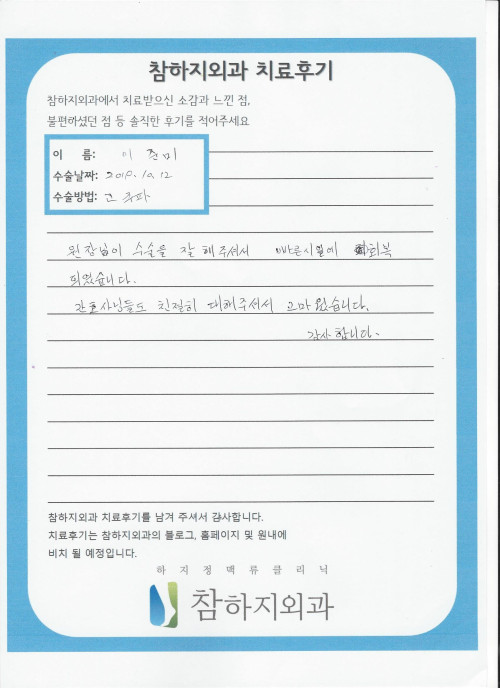 참하지외과 치료후기
참하지외과에서 치료받으신 소감과 느낀 점,
불편하셨던 점 등 솔직한 후기를 적어주세요
이 름: 이 준미
수술날짜: 2019. 10. 12
수술방법: 고주파
원장님이 수술을 잘 해주셔서 빠른시일에 회복
되었습니다.
간호사님들도 친절히 대해주셔서 고마웠습니다.
감사합니다.
참하지외과 치료후기를 남겨 주셔서 감사합니다.
치료후기는 참하지외과의 블로그, 홈페이지 및 원내에
비치 될 예정입니다.
하지정맥류클리닉
참하지외과